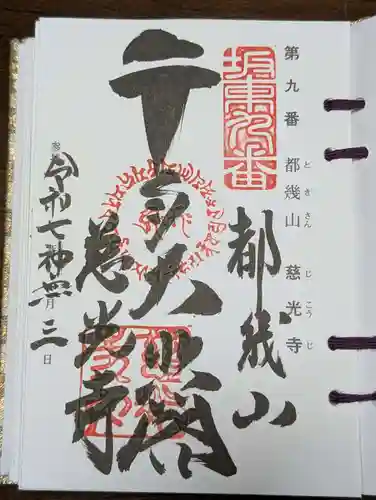 第九番 都幾山 慈光寺
ときさん じこうじ
坂東九番
都幾山
千手大悲閣
慈光寺
令和七神無月三日